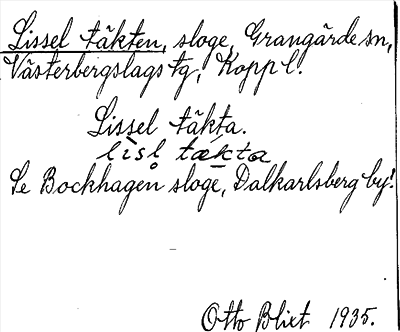 Lissel täkten, sloge, Grangärde sn,
Västerbergslags tg, Kopp l.
Lissel täkta.
lìsl tækta
Se Bockhagen sloge, Dalkarlsberg by!
Otto Blixt 1935.